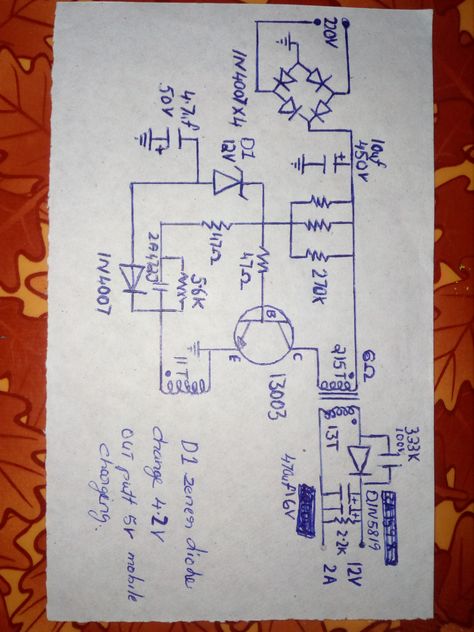 220V
1N4007X4
10uf
450V
4.7uf
50V
D1
12V
47Ω
47Ω
270K
1N4007
2A422J
56K
B
E
C
13003
11T
215T
6Ω
13T
333K
100V
1N5819
470uf 16V
2.2K
12V
2A
D1 zener diode
change 4.2V
out putt 5v mobile
charging.